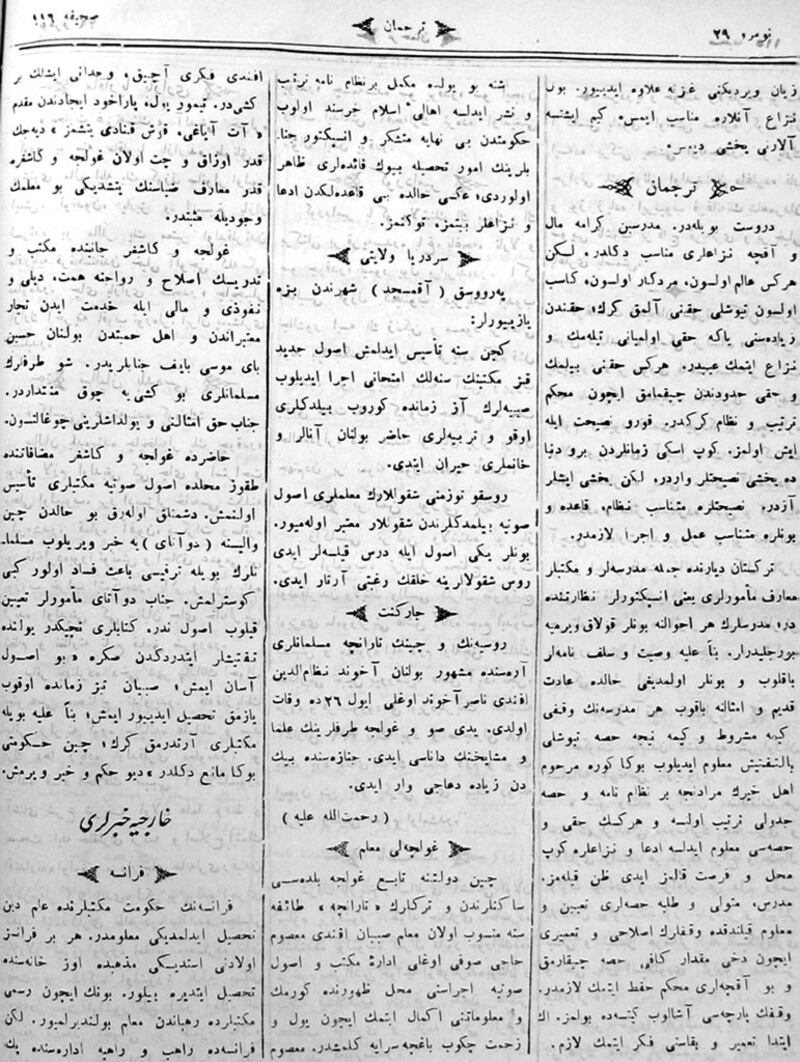 نومرو ٢٩
ترجمان
صحیفه ١١٦
زیان ویردیكنی غزته علاوه ایدییور. بون
نزاع آنلاره مناسب ایمس. كیم ایشنسه
آلارنی یخشی دیمس.
ترجمان
دروست بویله‌در. مدرسین كرامه مال
و آقچه نزاعلری مناسب دكلدر. لیكن
هركس عالم اولسون، مردكار اولسون، كاسب
اولسون تیوشلی حقنی آلمق كرك؛ حقندن
زیاده‌سنی یاكه حقی اولمیانی تیله‌مك و
نزاع ایتمك عیبدر. هركس حقنی بیلمك
و حقی حدودندن چیقمامق ایچون محكم
ترتیب و نظام كركدر. قورو نصیحت ایله
ایش اولمز. كوپ اسكی زمانلردن برو دنیا
ده یخشی نصیحتلر واردر. لیكن یخشی ایشلر
آزدر. نصیحتلره متناسب نظام، قاعده و
بونلره متناسب عمل و اجرا لازمدر.
تركستان دیارنده جمله مدرسه‌لر و مكتبلر
معارف مأمورلری یعنی انسپكتورلر نظارتنده
در؛ مدرسلرك هر احوالنه بونلر قولاق ویرمیه
بورجلیدرلر. بناً علیه وصیت و سلف نامه‌لر
باقلوب و بونلر اولمدیغی حالده عادت
قدیم و امثالنه باقوب هر مدرسه‌نك وقفی
كیمه مشروط و كیمه نیچه حصه تیوشلی
بالتفتیش معلوم ایدیلوب بوكا كوره مرحوم
اهل خیرك مرادنجه بر نظام نامه و حصه
جدولی ترتیب اولسه و هركسك حقی و
حصه‌سی معلوم ایدلسه ادعا و نزاعلره كوپ
محل و فرصت قالمز ایدی ظن قیله‌مز.
مدرس، متولی و طلبه حصه‌لری تعیین و
معلوم قیلندقده وقفلرك اصلاحی و تعمیری
ایچون دخی مقدار كافی حصه چیقارمق
و بو آقچه‌لری محكم حفظ ایتمك لازمدر.
وقفك پارچه‌سی آشالوب كیتسه‌ده بولمز. اك
ابتدا تعمیر و بقاسنی فكر ایتمك لازم.
شنه بو یولده مكمل بر نظام نامه ترتیب
و نشر ایدلسه اهالی اسلام خرسند اولوب
حكومتدن بی نهایه متشكر و انسپكتور جنا
بلرینك امور تحصیله بیوك فائده‌لری ظاهر
اولوردی؛ عكسی حالده بی قاعده‌لكدن ادعا
و نزاعلر بیتمز، توكنمز.
سردریا ولایتی
پەرووسق (آقمسجد) شهرندن بزه
یازییورلر:
كچن سنه تأسیس ایدلمش اصول جدید
قیز مكتبنك سنه‌لك امتحانی اجرا ایدیلوب
صبیه‌لرك آز زمانده كوروب بیلدكلری
اوقو و تربیه‌لری حاضر بولنان آنالر و
خانملری حیران ایتدی.
روسقو توزمنی شقولالرك معلملری اصول
صوتیه بیلمدكلرندن شقولالر معتبر اوله‌میور.
بونلر یكی اصول ایله درس قیلسه‌لر ایدی
روس شقولالرینه خلقك رغبتی آرتار ایدی.
جاركنت
روسیه‌نك و چینك تارانچه مسلمانلری
آره‌سنده مشهور بولنان آخوند نظام‌الدین
افندی ناصر آخوند اوغلی ایول ٢٦ ده وفات
اولدی. یدی صو و غولجه طرفلرینك علما
و مشایخنك داناسی ایدی. جنازه‌سنده بیك
دن زیاده دعاجی وار ایدی.
(رحمت‌الله علیه)
غولجه‌لی معلم
چین دولتنه تابع غولجه بلده‌سی
ساكنلرندن و تركلرك «تارانچه» طائفه
سنه منسوب اولان معلم صبیان افندی معصوم
حاجی صوفی اوغلی ادارۀ مكتب و اصول
صوتیه اجراسنی محل ظهورنده كورمك
و معلوماتنی اكمال ایتمك ایچون یول و
زحمت چكوب باغچه سرایه كلمشدر. معصوم
افندی فكری آچیق و وجدانی ایشلك بر
كشی‌در. تیمور یول، پاراخود ایجادندن مقدم
«آت آیاغی، قوش قنادی یتشمز» دیه‌جك
قدر اوزاق و چت اولان غولجه و كاشغر.
قدر معارف ضیاسنك یتشدیكی بو معلمك
وجودیله مثبتدر.
غولجه و كاشغر جانبنده مكتب و
تدریسك اصلاح و رواجنه همت، دیلی و
نفوذی و مالی ایله خدمت ایدن تجار
معتبراندن و اهل حمیتدن بولنان حسین
بای موسی بایف جنابلریدر. شو طرفلرك
مسلمانلری بو كشی‌یه چوق منتداردر.
جناب حق امثالنی و یولداشلرینی چوغالتسون.
حاضرده غولجه و كاشغر مضافاتنده
طقوز محلده اصول صوتیه مكتبلری تأسیس
اولنمش. دشمنلق اوله‌رق بو حالدن چین
والیسنه (دوآنای) یه خبر ویریلوب مسلما.
نلرك بویله ترقیسی باعث فساد اولور كبی
كوسترلمش. جناب دوآتای مأمورلر تعیین
قیلوب اصول ندر. كتابلری نیچكدر بولنده
تفتیشلر ایتدردكدن صكره «بو اصول
آسان ایمش؛ صبیان تیز زمانده اوقوب
یازمق تحصیل ایدییور ایمش؛ بناً علیه بویله
مكتبلری آرتدرمق كرك؛ چین حكومتی
بوكا مانع دكلدر» دیو حكم و خبر ویرمش.
خارجیه خبرلری
فرانسه
فرانسه‌نك حكومت مكتبلرنده علم دین
تحصیل ایدلمدیكی معلومدر. هر بر فرانسز
اولادنی استدیكی مذهبده اوز خانه‌سنده
تحصیل ایتدیره بیلور. بونك ایچون رسمی
مكتبلرده رهباندن معلم بولندیرلمیور. لكن
فرانسه‌ده راهب و راهبه اداره‌سنده پك